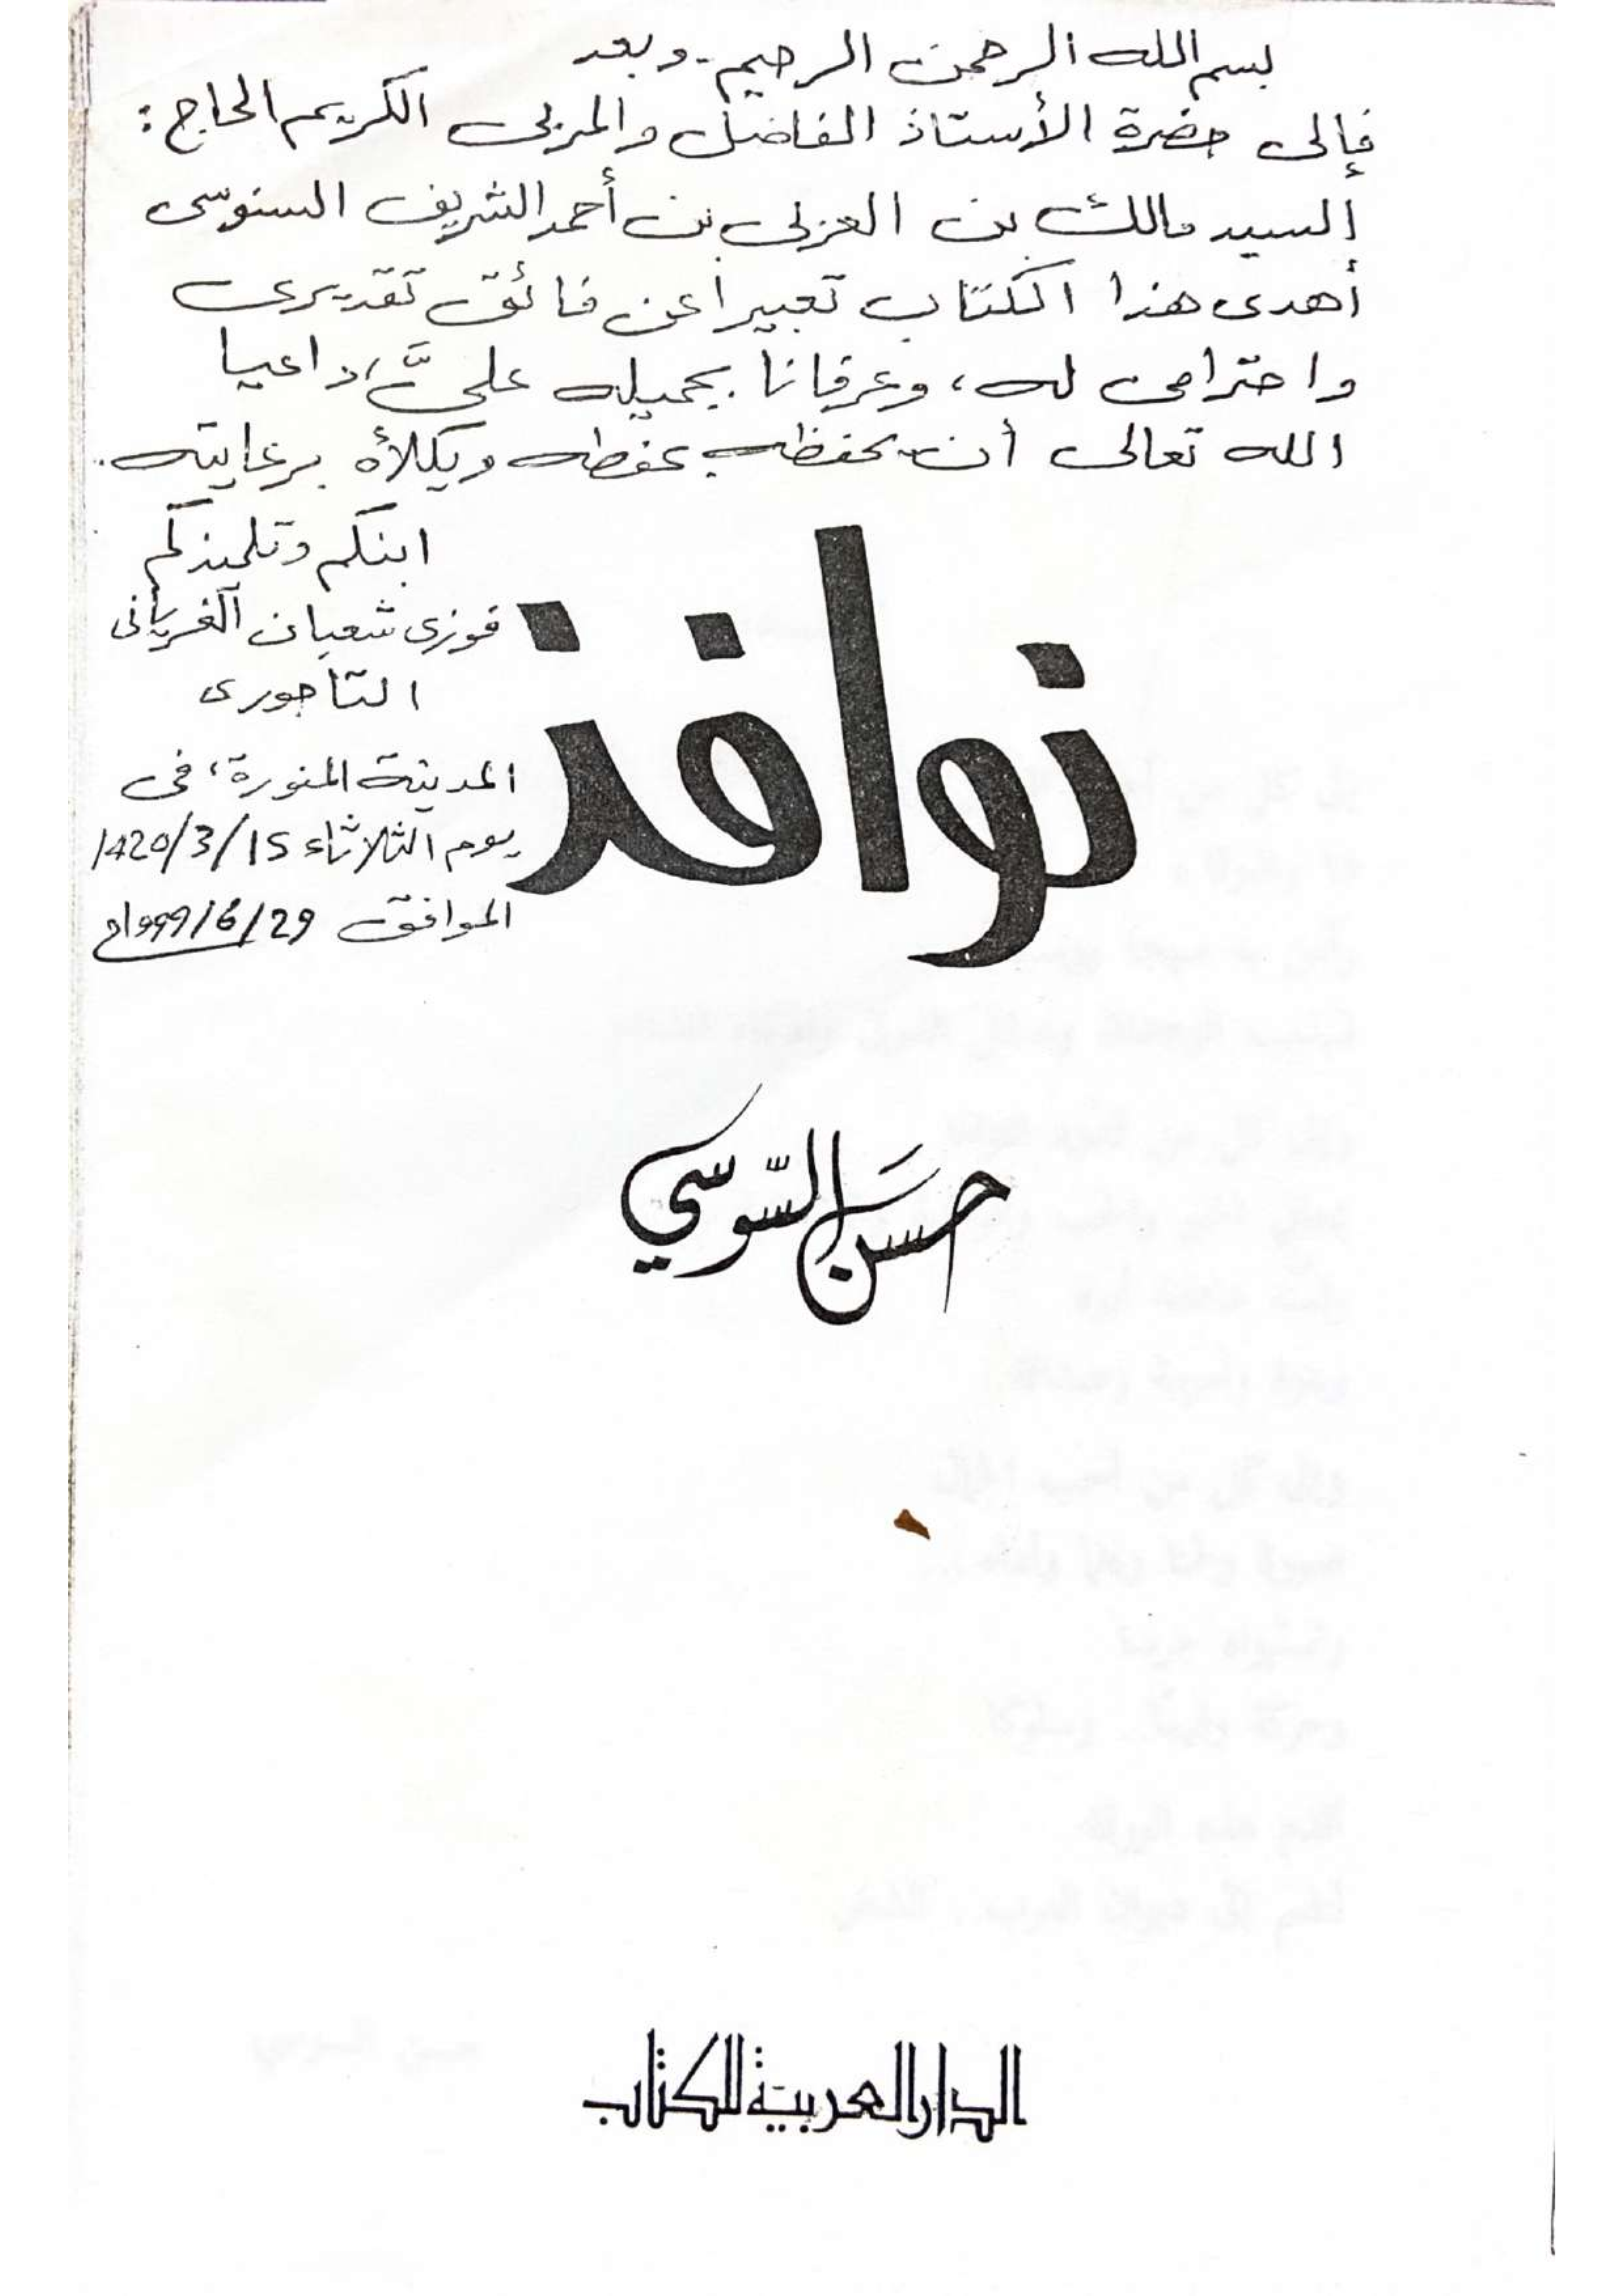 بسم الله الرحمن الرحيم - وبعد
فإلى حضرة الأستاذ الفاضل والمربى الكريم الحاج :
السيد مالك بن العربى بن أحمد الشريف السنوسى
أهدى هذا الكتاب تعبيرا عن فائق تقديرى
واحترامى له، وعرفانا بجميله علىَّ، داعيا
الله تعالى أن يحفظه بحفظه ويكلأه برعايته.
ابنكم وتلميذكم
فوزى شعبان الغريانى
التاجورى
المدينة المنورة، فى
يوم الثلاثاء 1420/3/15
الموافق 1999/6/29م
نوافذ
حسَن السّوسي
الدار العربية للكتاب